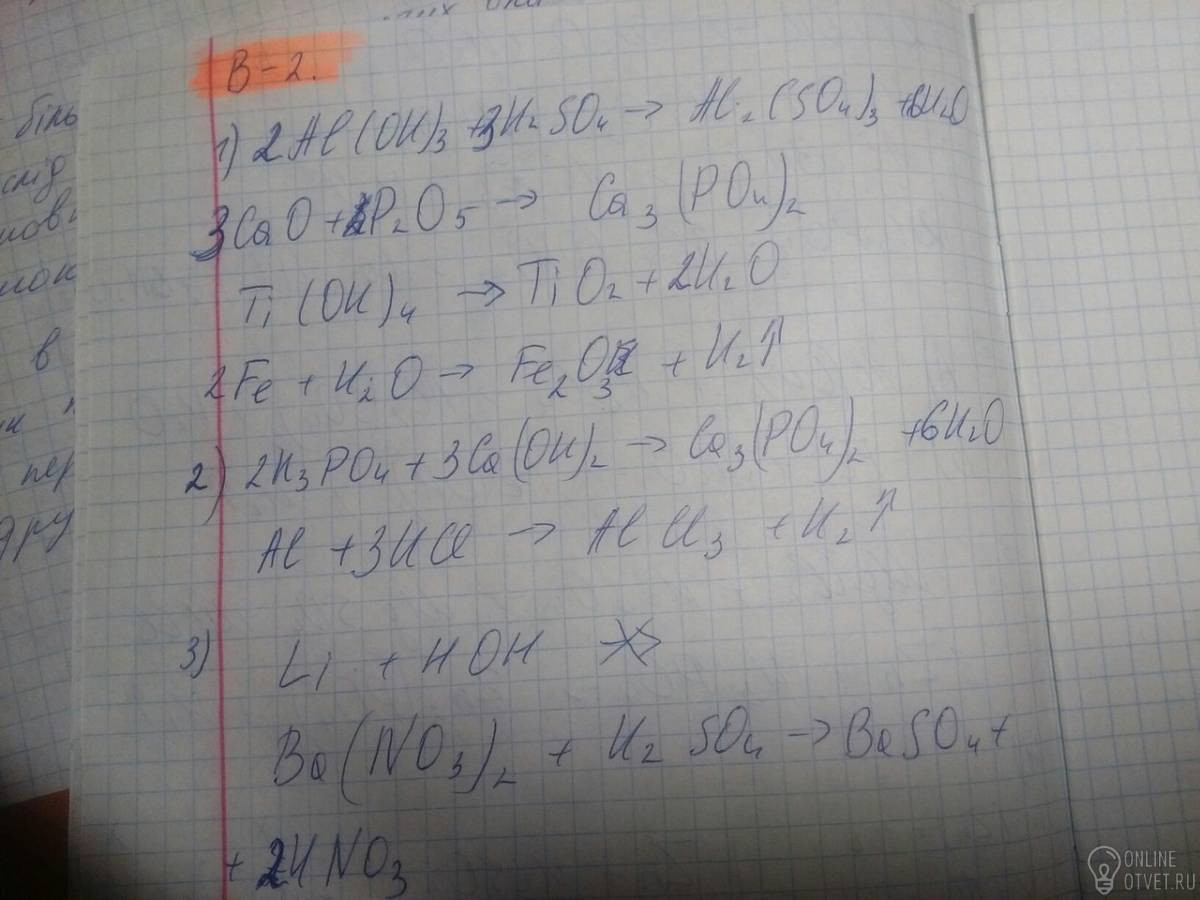 них
біль
слід
в
пер
В-2.
1) 2Al(OH)₃ + 3H₂SO₄ → Al₂(SO₄)₃ + 6H₂O
3CaO + P₂O₅ → Ca₃(PO₄)₂
Ti(OH)₄ → TiO₂ + 2H₂O
2Fe + H₂O → Fe₂O₃ + H₂↑
2) 2H₃PO₄ + 3Ca(OH)₂ → Ca₃(PO₄)₂ + 6H₂O
Al + 3HCl → AlCl₃ + H₂↑
3) Li + HOH
Ba(NO₃)₂ + H₂SO₄ → BaSO₄ +
+ 2HNO₃
ONLINE
OTVET.RU